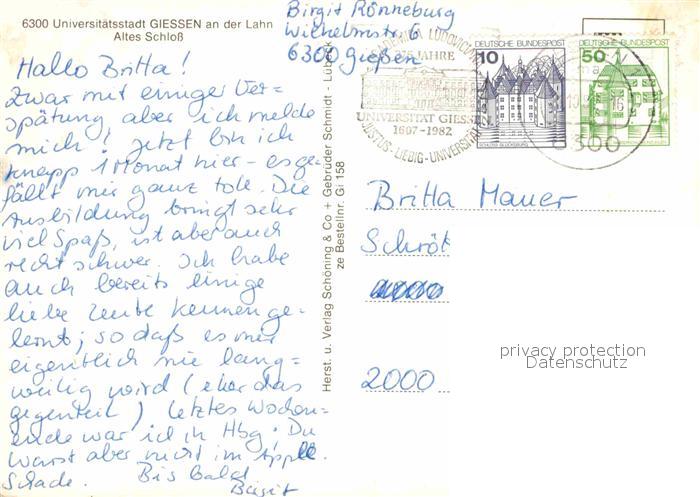 6300 Universitätsstadt GIESSEN an der Lahn
Altes Schloß
Birgit Rönneburg
Wilhelmstr. 6
6300 Gießen
Hallo Britta!
Zwar mit einiger Ver=
spätung aber ich melde
mich! Jetzt bin ich
knapp 1 Monat hier - es ge-
fällt mir ganz toll. Die
Ausbildung bringt sehr
viel Spaß, ist aber auch
recht schwer. Ich habe
auch bereits einige
liebe Leute kennenge-
lernt; so daß es mir
eigentlich nie lang=
weilig wird (eher das
gegenteil) letztes Wochen-
ende war ich in Hbg! Du
warst aber nicht im
Schade. Bis bald
Birgit
Herst. u. Verlag Schöning & Co + Gebrüder Schmidt - Lübeck
ze Bestellnr. Gi 158
ACADEMIA LUDOVICIANA
375 JAHRE
UNIVERSITÄT GIESSEN
1607-1982
JUSTUS-LIEBIG-UNIVERSITÄT
10 DEUTSCHE BUNDESPOST
SCHLOSS GLÜCKSBURG
DEUTSCHE BUNDESPOST
50
16
6300
Britta Mauer
Schröt
2000
privacy protection
Datenschutz